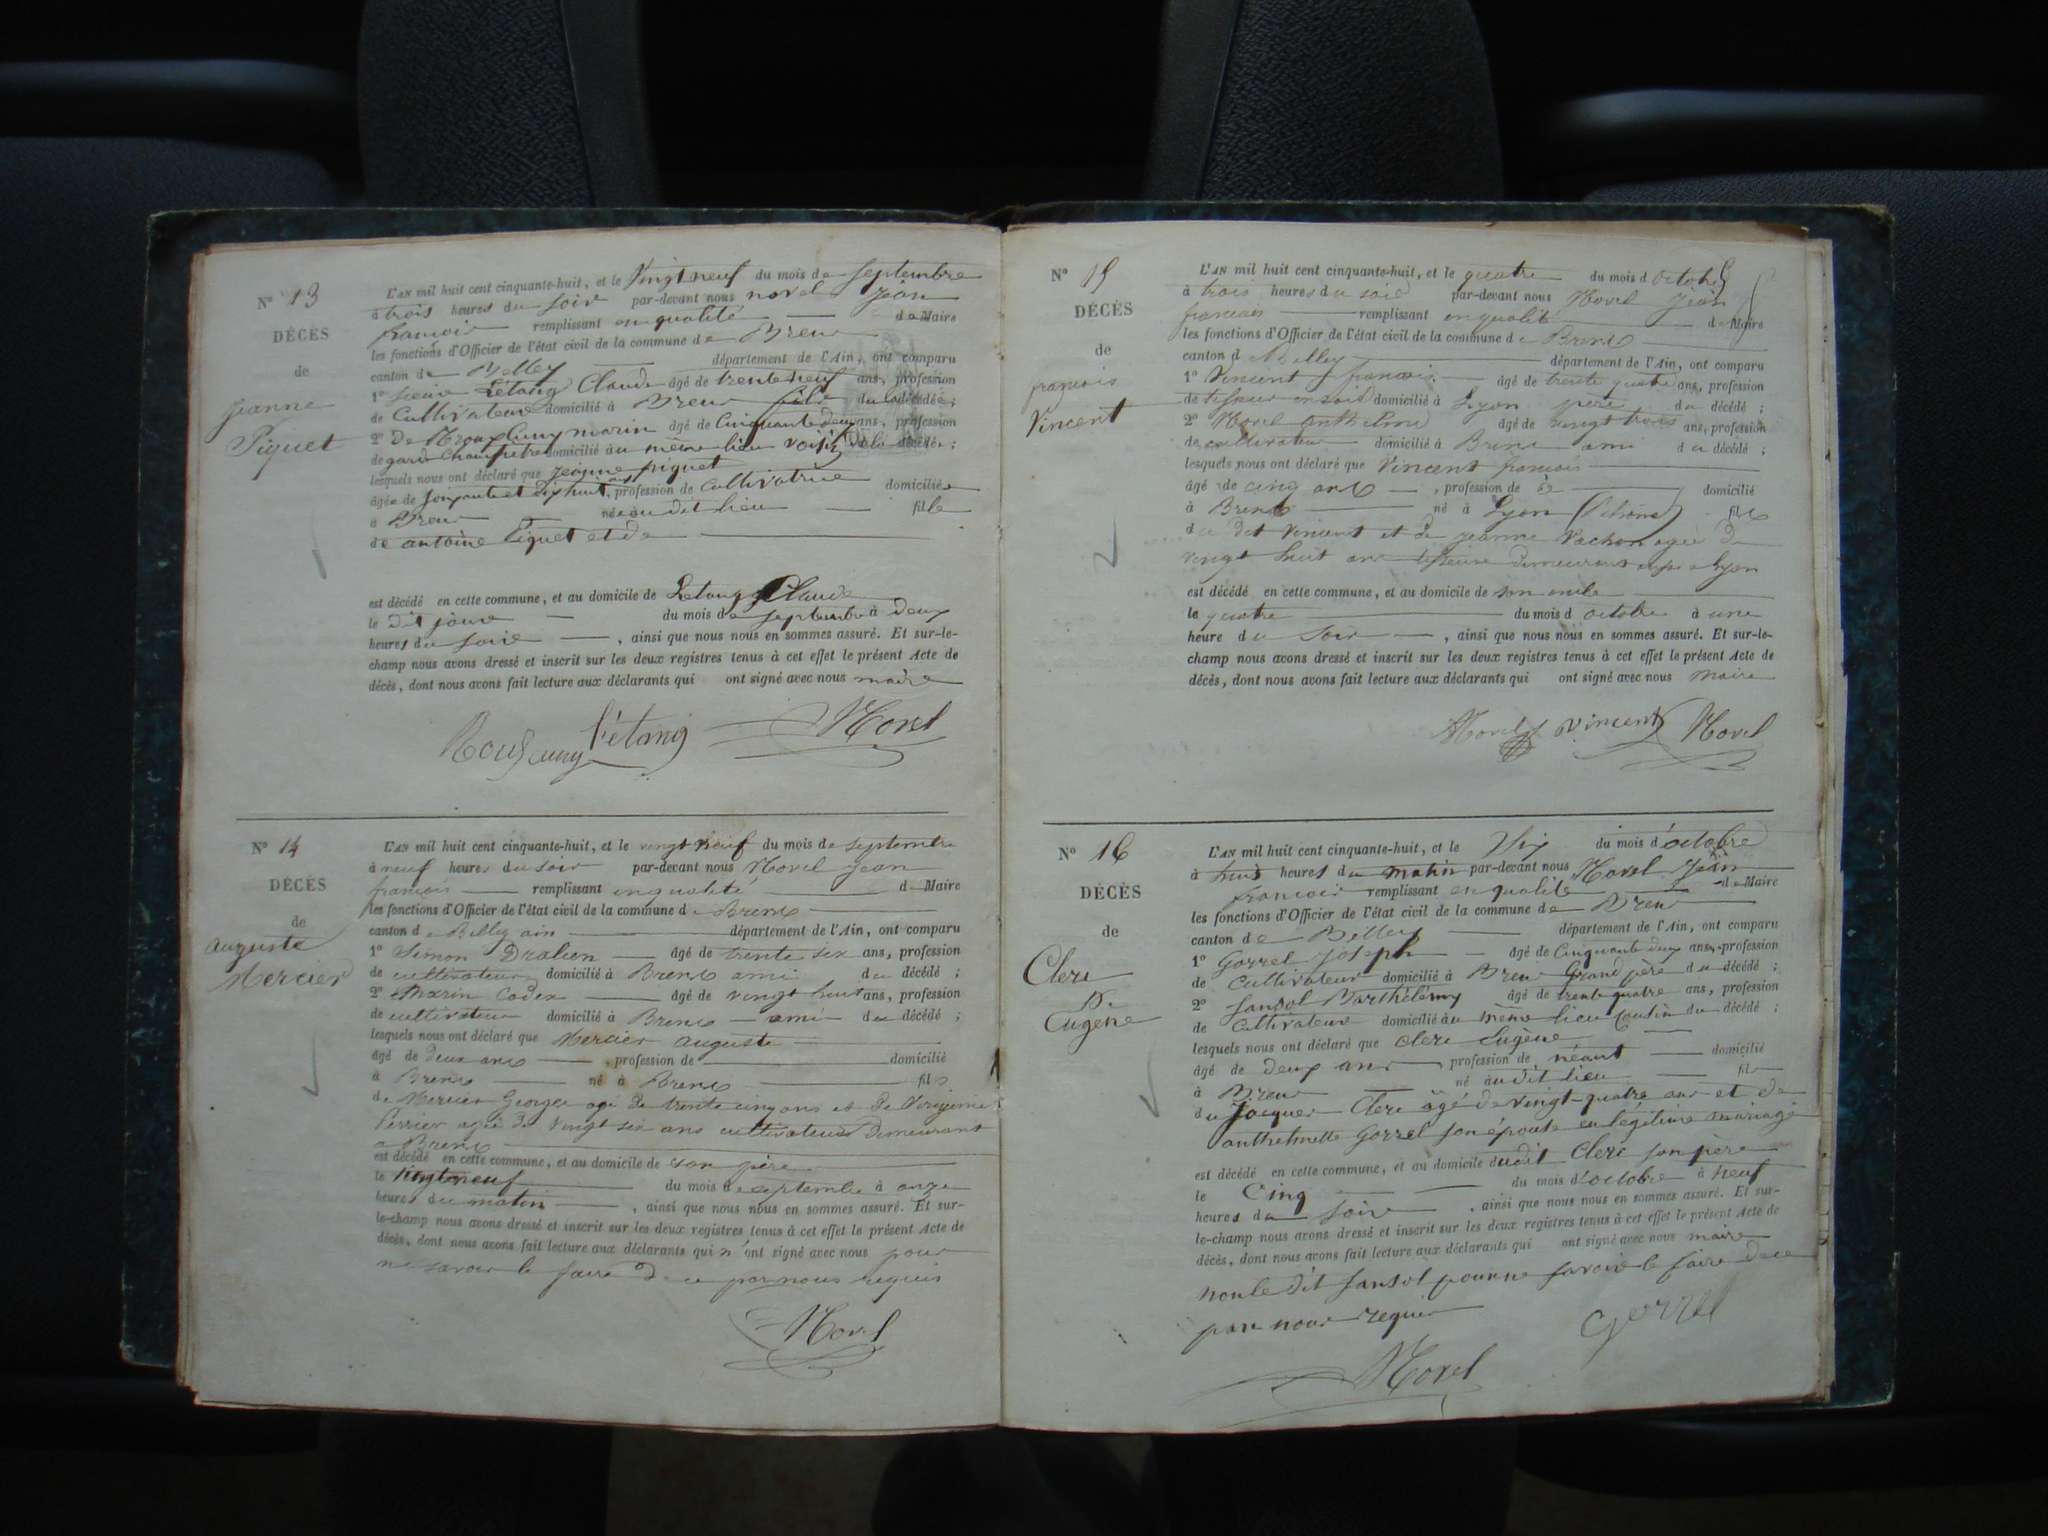 N° 13
DÉCÈS
de
Jeanne
Piquet
L'AN mil huit cent cinquante-huit, et le Vingt neuf du mois de septembre
à trois heures du soir par-devant nous Morel Jean
françois remplissant en qualité de Maire
les fonctions d'Officier de l'état civil de la commune de Brens
canton de Belley département de l'Ain, ont comparu
1° sieur Létang Claude âgé de trente neuf ans, profession
de Cultivateur domicilié à Brens fils du décédé ;
2° de Rouf Cuny marin âgé de Cinquante deux ans, profession
de garde Champêtre domicilié au même lieu voisin de la décédée ;
lesquels nous ont déclaré que Jeanne piquet
âgée de soixante et dix huit ans, profession de Cultivatrice domiciliée
à Brens née au dit lieu fille
de antoine Piquet et de
est décédé en cette commune, et au domicile de Létang Claude
le dit jour du mois de septembre à deux
heures du soir , ainsi que nous nous en sommes assuré. Et sur-le-
champ nous avons dressé et inscrit sur les deux registres tenus à cet effet le présent Acte de
décès, dont nous avons fait lecture aux déclarants qui ont signé avec nous maire
Létang Morel
N° 14
DÉCÈS
de
auguste
Mercier
L'AN mil huit cent cinquante-huit, et le vingt neuf du mois de septembre
à neuf heures du soir par-devant nous Morel Jean
françois remplissant en qualité de Maire
les fonctions d'Officier de l'état civil de la commune de Brens
canton de Belley ain département de l'Ain, ont comparu
1° Simon âgé de trente six ans, profession
de cultivateur domicilié à Brens ami du décédé ;
2° Marin Codex âgé de vingt huit ans, profession
de cultivateur domicilié à Brens ami du décédé ;
lesquels nous ont déclaré que Mercier auguste
âgé de deux ans , profession de domicilié
à Brens né à Brens fils
de Mercier George agé de trente cinq ans et de
Perrier agée de vingt six ans cultivateurs demeurant
a Brens
est décédé en cette commune, et au domicile de son père
le vingt neuf du mois de septembre à onze
heures du matin , ainsi que nous nous en sommes assuré. Et sur-
le-champ nous avons dressé et inscrit sur les deux registres tenus à cet effet le présent Acte de
décès, dont nous avons fait lecture aux déclarants qui n'ont signé avec nous pour
ne savoir le faire de ce par nous requis
Morel
N° 15
DÉCÈS
de
françois
Vincent
L'AN mil huit cent cinquante-huit, et le quatre du mois d'octobre
à trois heures du soir par-devant nous Morel Jean
françois remplissant en qualité de Maire
les fonctions d'Officier de l'état civil de la commune de Brens
canton de Belley département de l'Ain, ont comparu
1° Vincent françois âgé de trente quatre ans, profession
de tisseur en soie domicilié à Lyon père du décédé ;
2° Morel anthelme âgé de vingt trois ans, profession
de cultivateur domicilié à Brens ami du décédé ;
lesquels nous ont déclaré que Vincent françois
âgé de cinq ans , profession de domicilié
à Brens né à Lyon (Rhône) fils
du dit Vincent et de jeanne Vachon agée de
vingt huit ans tisseuse demeurant a Lyon
est décédé en cette commune, et au domicile de son oncle
le quatre du mois d'octobre à une
heure du soir , ainsi que nous nous en sommes assuré. Et sur-le-
champ nous avons dressé et inscrit sur les deux registres tenus à cet effet le présent Acte de
décès, dont nous avons fait lecture aux déclarants qui ont signé avec nous maire
Morel Vincent Morel
N° 16
DÉCÈS
de
Clerc
Eugène
L'AN mil huit cent cinquante-huit, et le Six du mois d'octobre
à huit heures du matin par-devant nous Morel Jean
françois remplissant en qualité de Maire
les fonctions d'Officier de l'état civil de la commune de Brens
canton de Belley département de l'Ain, ont comparu
1° Gorrel Joseph âgé de Cinquante deux ans, profession
de Cultivateur domicilié à Brens Grand père du décédé ;
2° Sansol Barthélémy âgé de trente quatre ans, profession
de Cultivateur domicilié au même lieu Cousin du décédé ;
lesquels nous ont déclaré que Clerc Eugène
âgé de deux ans profession de néant domicilié
à Brens né au dit lieu fils
du Jacques Clerc âgé de vingt-quatre ans et de
anthelmette Gorrel son épouse en légitime mariage
est décédé en cette commune, et au domicile dudit Clerc son père
le Cinq du mois d'octobre à neuf
heures du soir , ainsi que nous nous en sommes assuré. Et sur-
le-champ nous avons dressé et inscrit sur les deux registres tenus à cet effet le présent Acte de
décès, dont nous avons fait lecture aux déclarants qui ont signé avec nous maire
non le dit Sansol pour ne savoir le faire de ce
par nous requis Gorrel
Morel